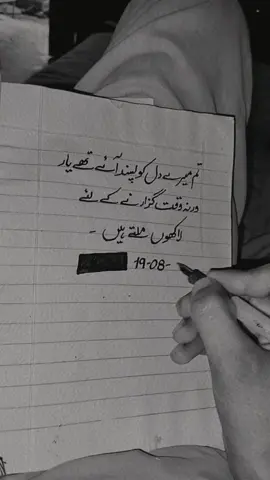 تم میرے دل کو پسند آئے تھے یار
ورنہ وقت گزارنے کے لئے
لاکھوں ملتے ہیں ۔
19-08-